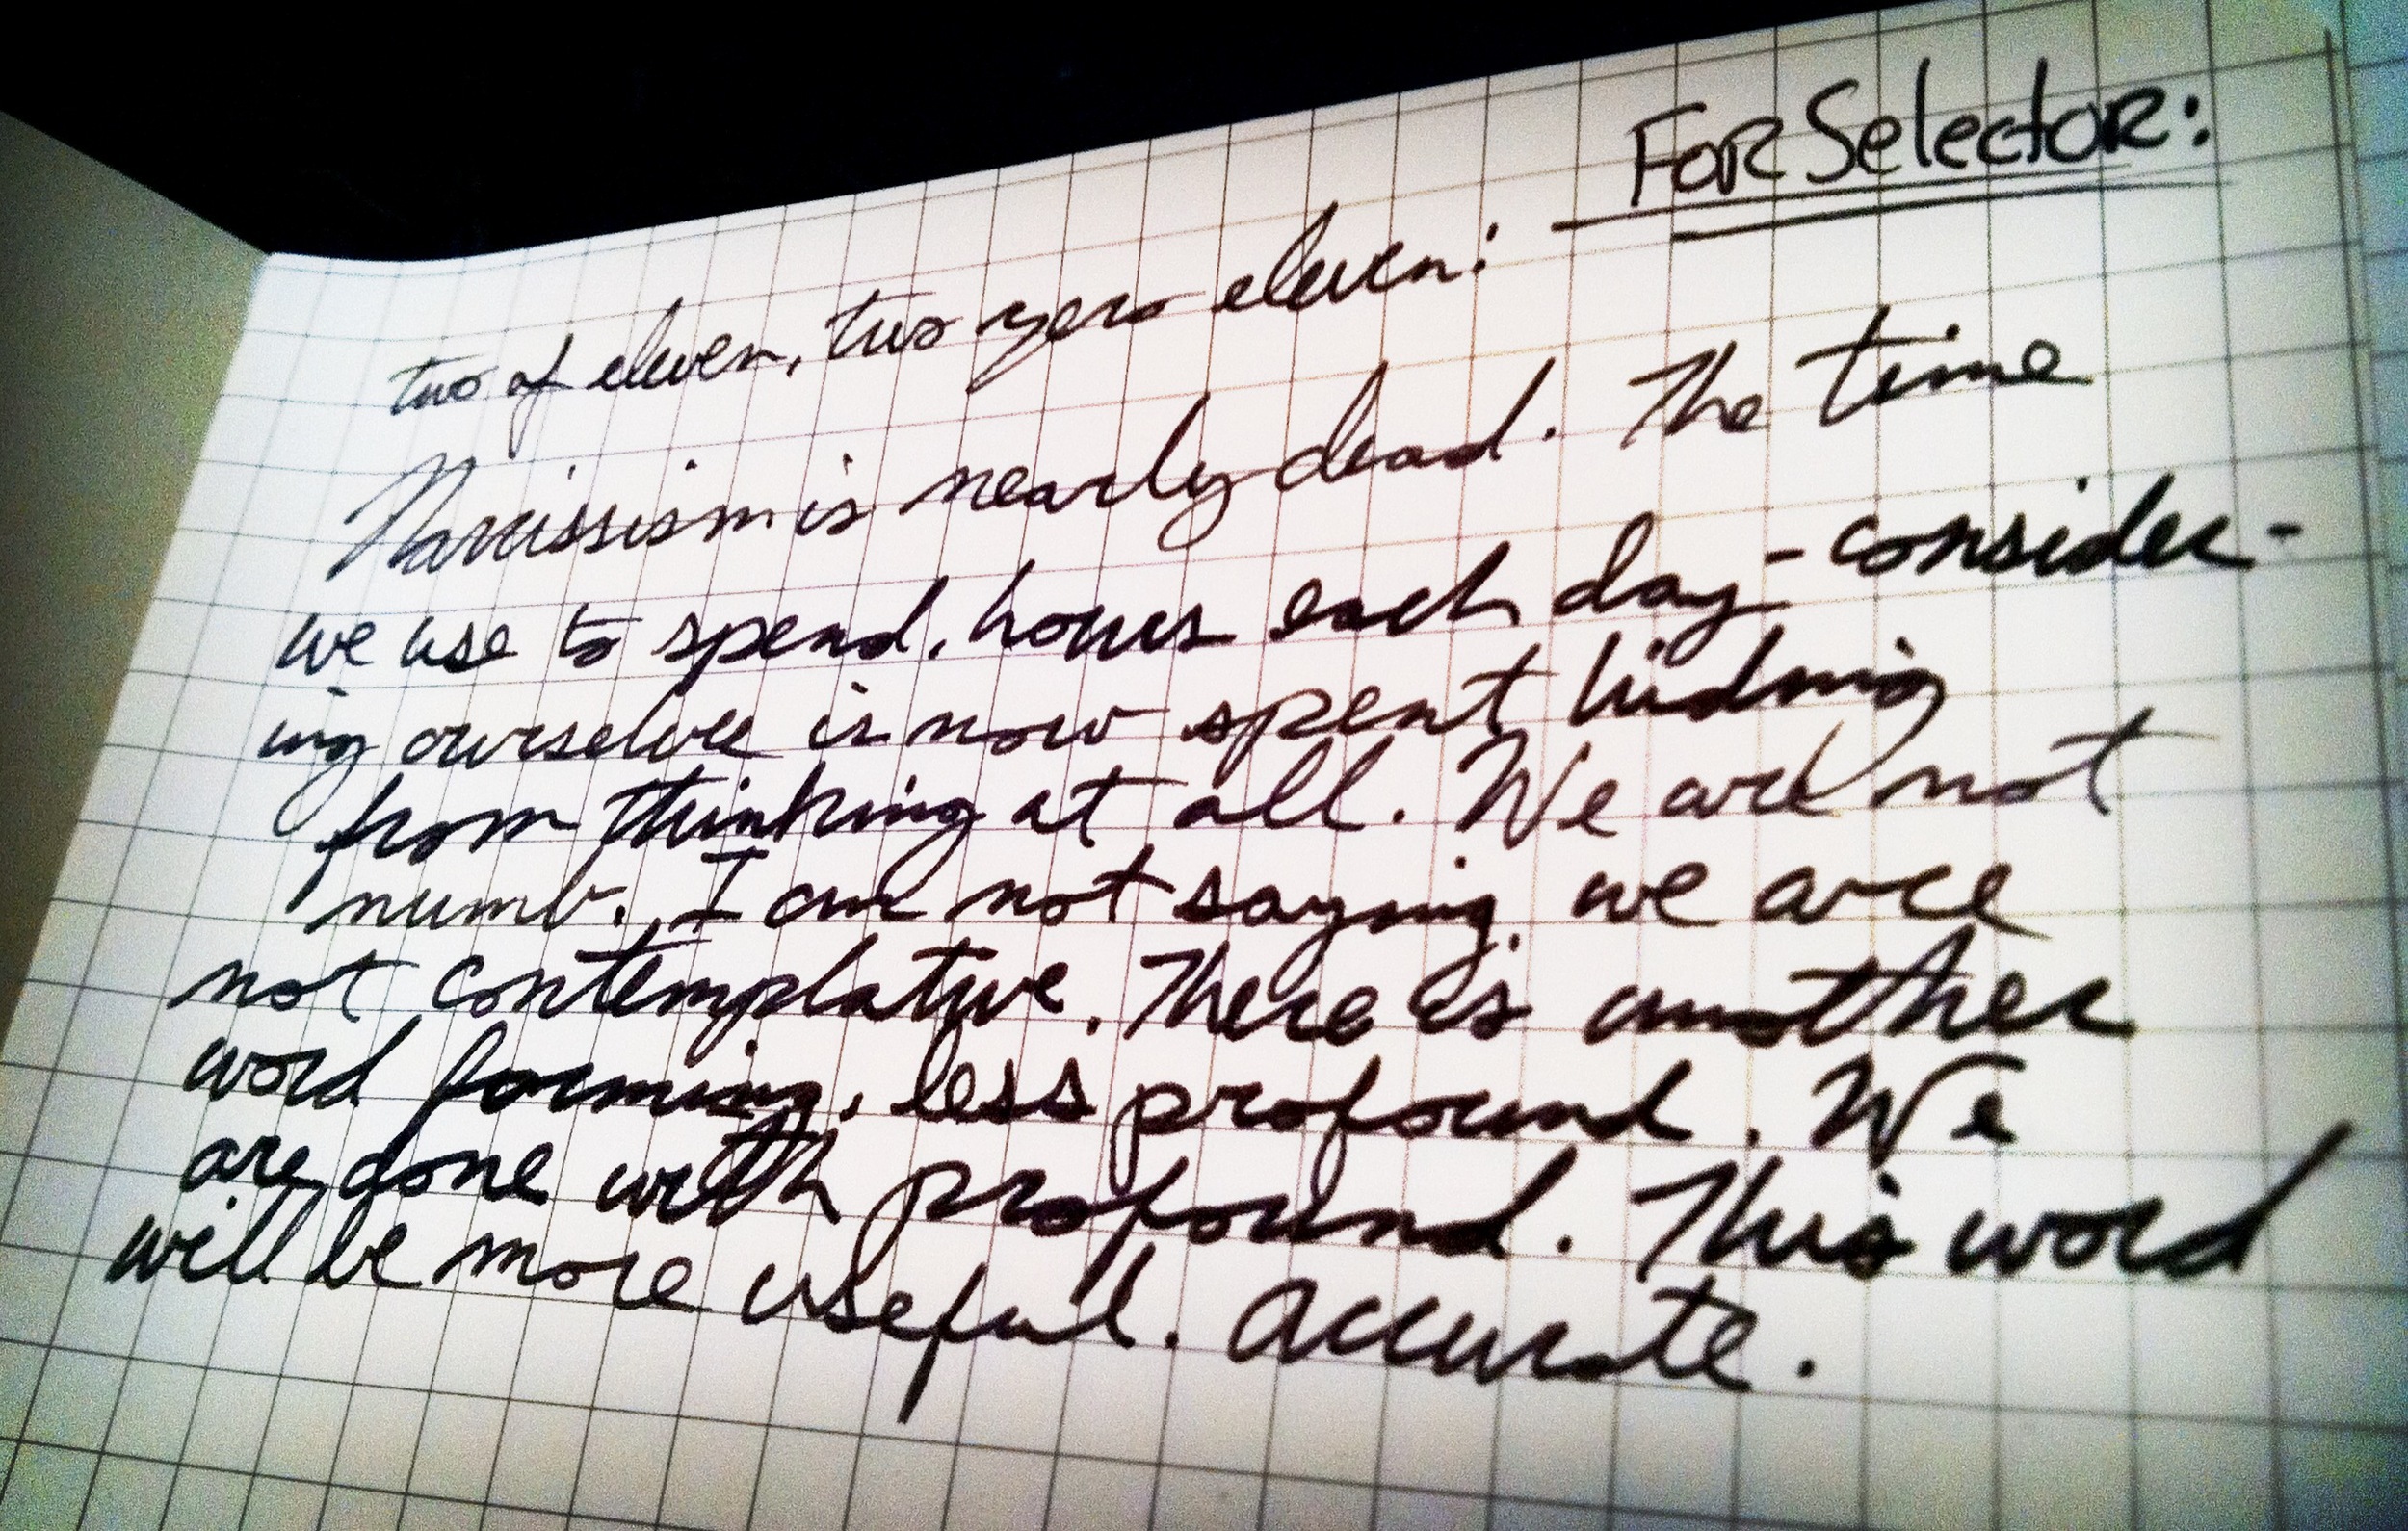 FOR Selector:
two of eleven, two zero eleven:
Narcissism is nearly dead. The time
we use to spend, hours each day - consider-
ing ourselves is now spent hiding
from thinking at all. We are not
numb. I am not saying, we are
not contemplative. There is another
word forming, less profound. We
are done with profound. This word
will be more useful. Accurate.